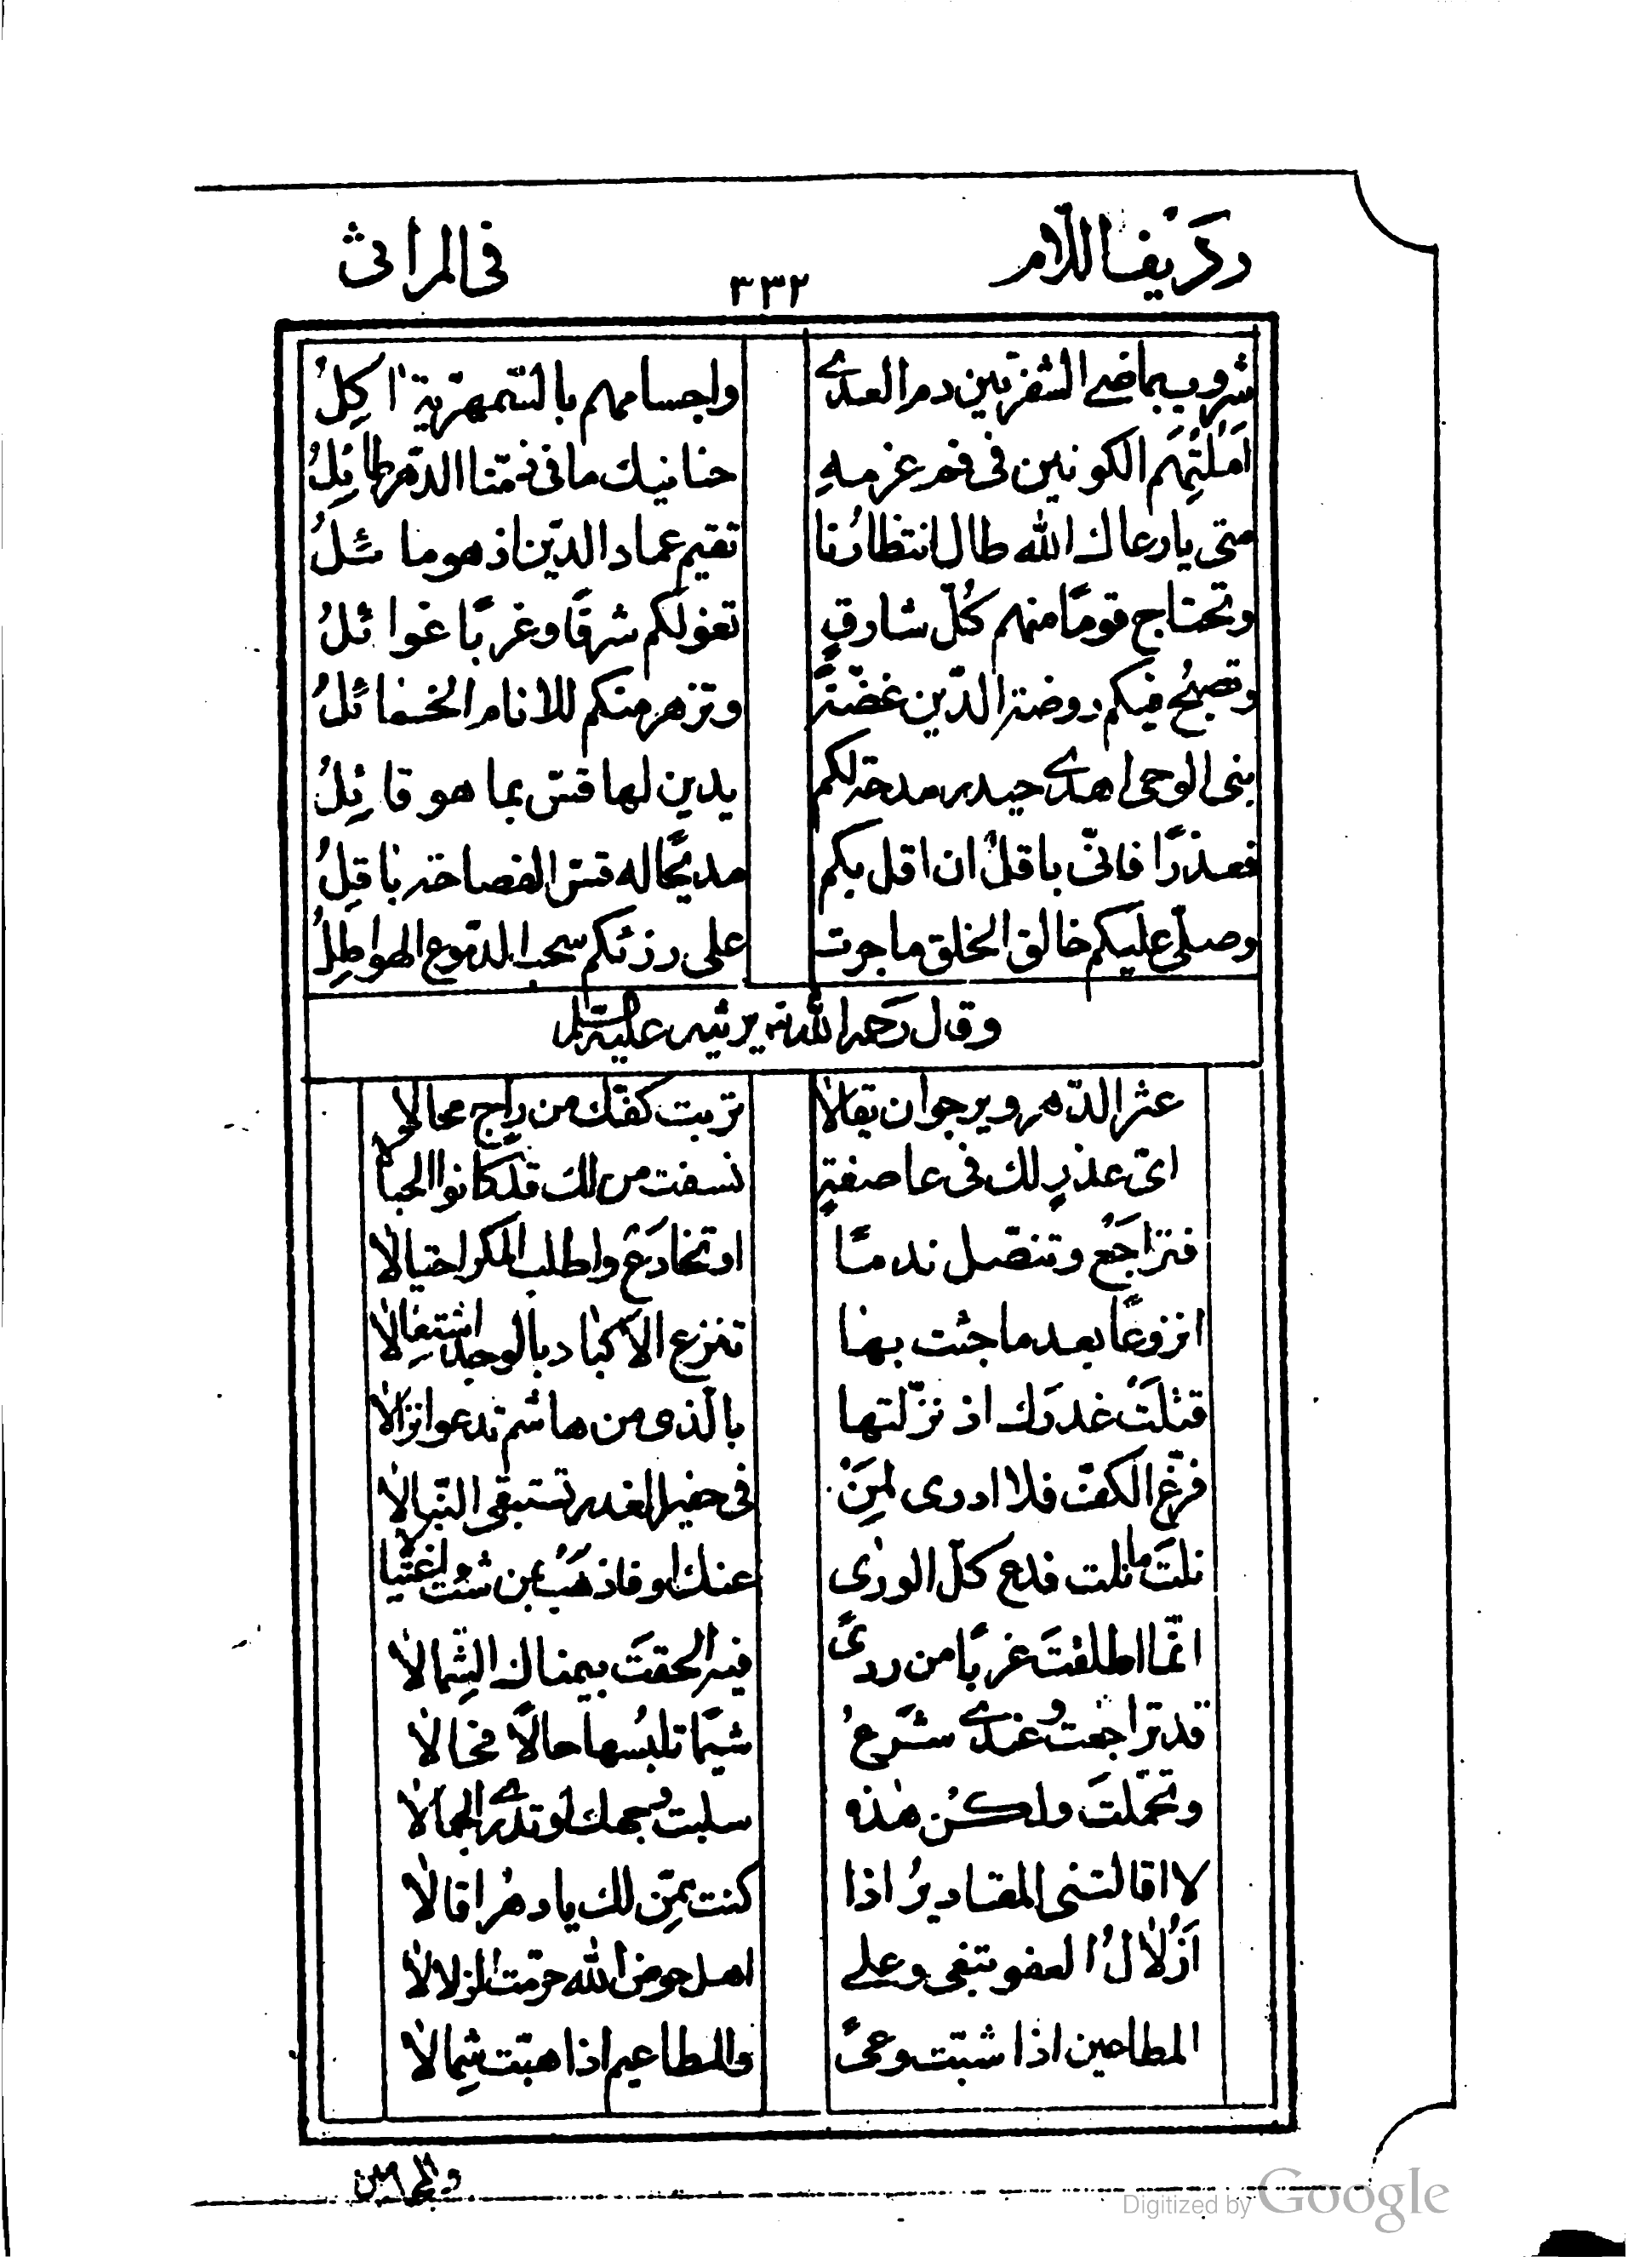 رديف اللام
في المراثي
٣٣٢
شروب بماضي الشفرتين دم العدى واجسامهم بالسمهرية اكِلُ
امُلتهم الكونين في فم عزمهِ حنانيك ما في ذمّنا الدّهر طائِلُ
متى يا رعاك الله طال انتظارُنا تقيم عماد الدّين اذ هو مائلُ
وتجتاح قومًا منهم كُلّ شارقٍ تغولكم شرقًا وغربًا غوائلُ
وتصبحُ فيكم روضة الدّين غضّةً وتزهر منكم للانام الخمائلُ
بنى الوحي اهدى حيدر مدحة لكم يدين لها قسّ بما هو قائِلُ
فعذرًا فانّي باقلٌ ان اقل بكم مديحًا له قسّ الفصاحة باقِلُ
وصلّى عليكم خالق الخلق ما جرت على رزئكم سحب الدّموع الهواطِلُ
وقال رحمه الله يرثيه عليه السلام
عثر الدّهر ويرجو ان يقالا تربت كفّك من راجٍ محالا
ايّ عذرٍ لك في عاصفةٍ نسفت من لك قد كانوا الجبالا
فتراجَعْ وتنصّل ندمًا او تخادَعْ واطلب المكر احتيالا
انزوعًا بعد ما جئت بها تنزع الاكباد بالوجد اشتعالا
قتلَتْ غدرَك اذ نزّلتها بالّذى من هاشم تدعو انزالا
فرّغ الكفّ فلا ادرى لمِنْ في جفير الغدر تستبقي النّبالا
نلتَ ما نلت فدع كلّ الورى عنك او فاذهَبْ بمن شئت اغتيالا
انّما اطلقتَ غربًا من ردىً فيه الحقتَ بيمناك الشّمالا
قد تراجعتُ وعندى شَرعُ شيمًا تلبسُها حالاً فحالا
وتجمّلتَ ولكن هذه سلبت وجهك لو تدرى الجمالا
لا اقالتنى المقاديرُ اذا كنت ممّن لك يا دهرُ اقالا
اَزُلالُ العفو تبغي وعلى اهل حوض الله حرّمت الزلالا
المطاعين اذا شبّت وغىً والمطاعيم اذا هبّت شِمالا
Digitized by Google